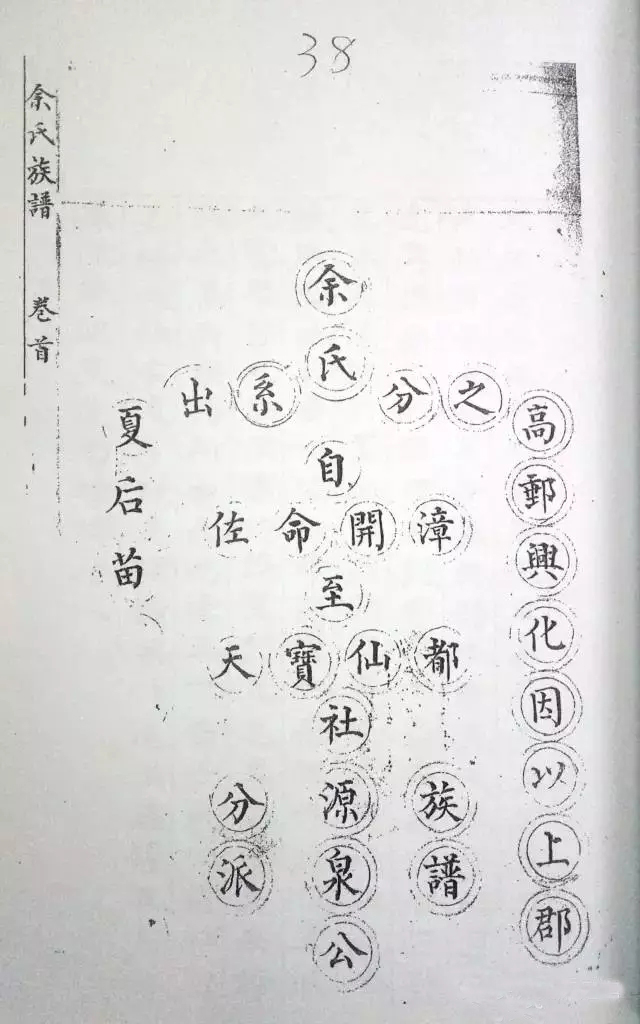 38
余氏族譜 卷首
余氏
系出
夏后苗
分之
高郵興化因以上郡
自
佐命開漳
至
天寶仙都
社源泉公
分派
族譜